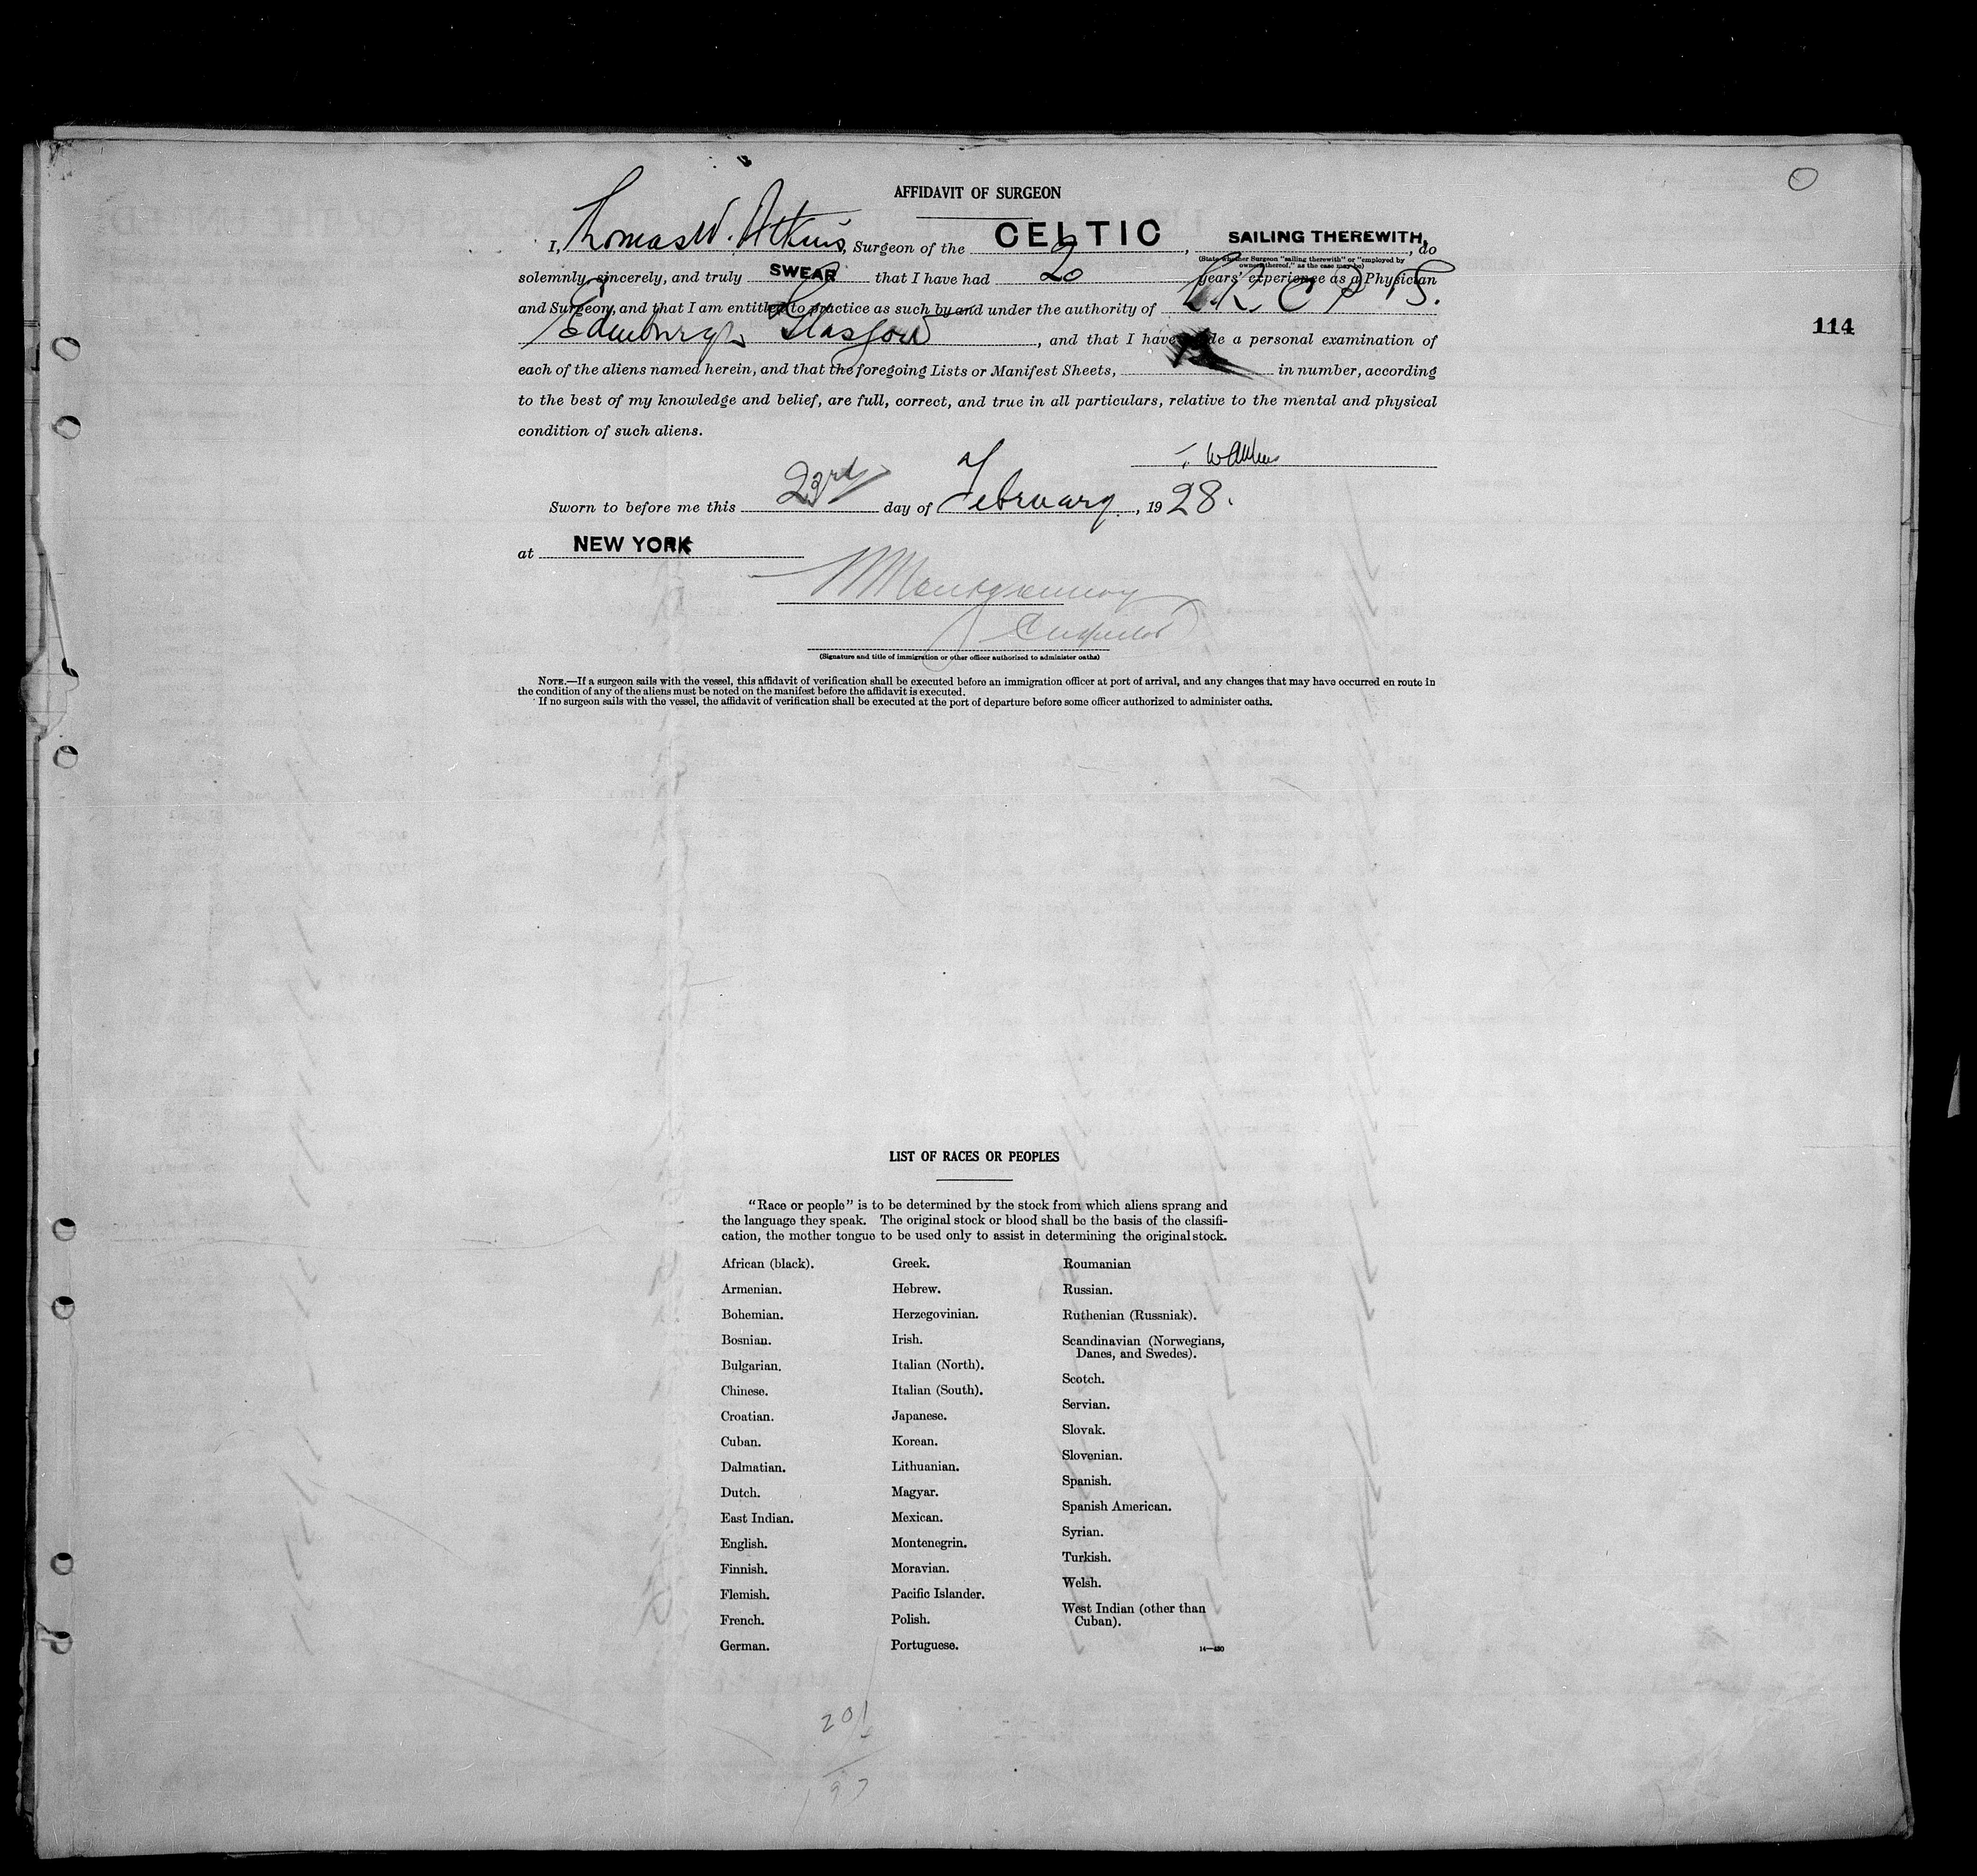 AFFIDAVIT OF SURGEON
I, Thomas W. Atkins, Surgeon of the CELTIC, SAILING THEREWITH, do
(State whether Surgeon "sailing therewith" or "employed by
owners thereof," as the case may be)
solemnly, sincerely, and truly SWEAR that I have had 20 years' experience as a Physician
and Surgeon, and that I am entitled to practice as such by and under the authority of L.R.C.P.S.
Edinburgh Glasgow, and that I have made a personal examination of
each of the aliens named herein, and that the foregoing Lists or Manifest Sheets, in number, according
to the best of my knowledge and belief, are full, correct, and true in all particulars, relative to the mental and physical
condition of such aliens.
T. W Atkins
Sworn to before me this 23rd day of February, 1928.
at NEW YORK
Montgomery
Inspector
(Signature and title of immigration or other officer authorized to administer oaths)
NOTE.—If a surgeon sails with the vessel, this affidavit of verification shall be executed before an immigration officer at port of arrival, and any changes that may have occurred en route in
the condition of any of the aliens must be noted on the manifest before the affidavit is executed.
If no surgeon sails with the vessel, the affidavit of verification shall be executed at the port of departure before some officer authorized to administer oaths.
114
LIST OF RACES OR PEOPLES
"Race or people" is to be determined by the stock from which aliens sprang and
the language they speak. The original stock or blood shall be the basis of the classifi-
cation, the mother tongue to be used only to assist in determining the original stock.
African (black).
Armenian.
Bohemian.
Bosnian.
Bulgarian.
Chinese.
Croatian.
Cuban.
Dalmatian.
Dutch.
East Indian.
English.
Finnish.
Flemish.
French.
German.
Greek.
Hebrew.
Herzegovinian.
Irish.
Italian (North).
Italian (South).
Japanese.
Korean.
Lithuanian.
Magyar.
Mexican.
Montenegrin.
Moravian.
Pacific Islander.
Polish.
Portuguese.
Roumanian
Russian.
Ruthenian (Russniak).
Scandinavian (Norwegians,
Danes, and Swedes).
Scotch.
Servian.
Slovak.
Slovenian.
Spanish.
Spanish American.
Syrian.
Turkish.
Welsh.
West Indian (other than
Cuban).
14—430